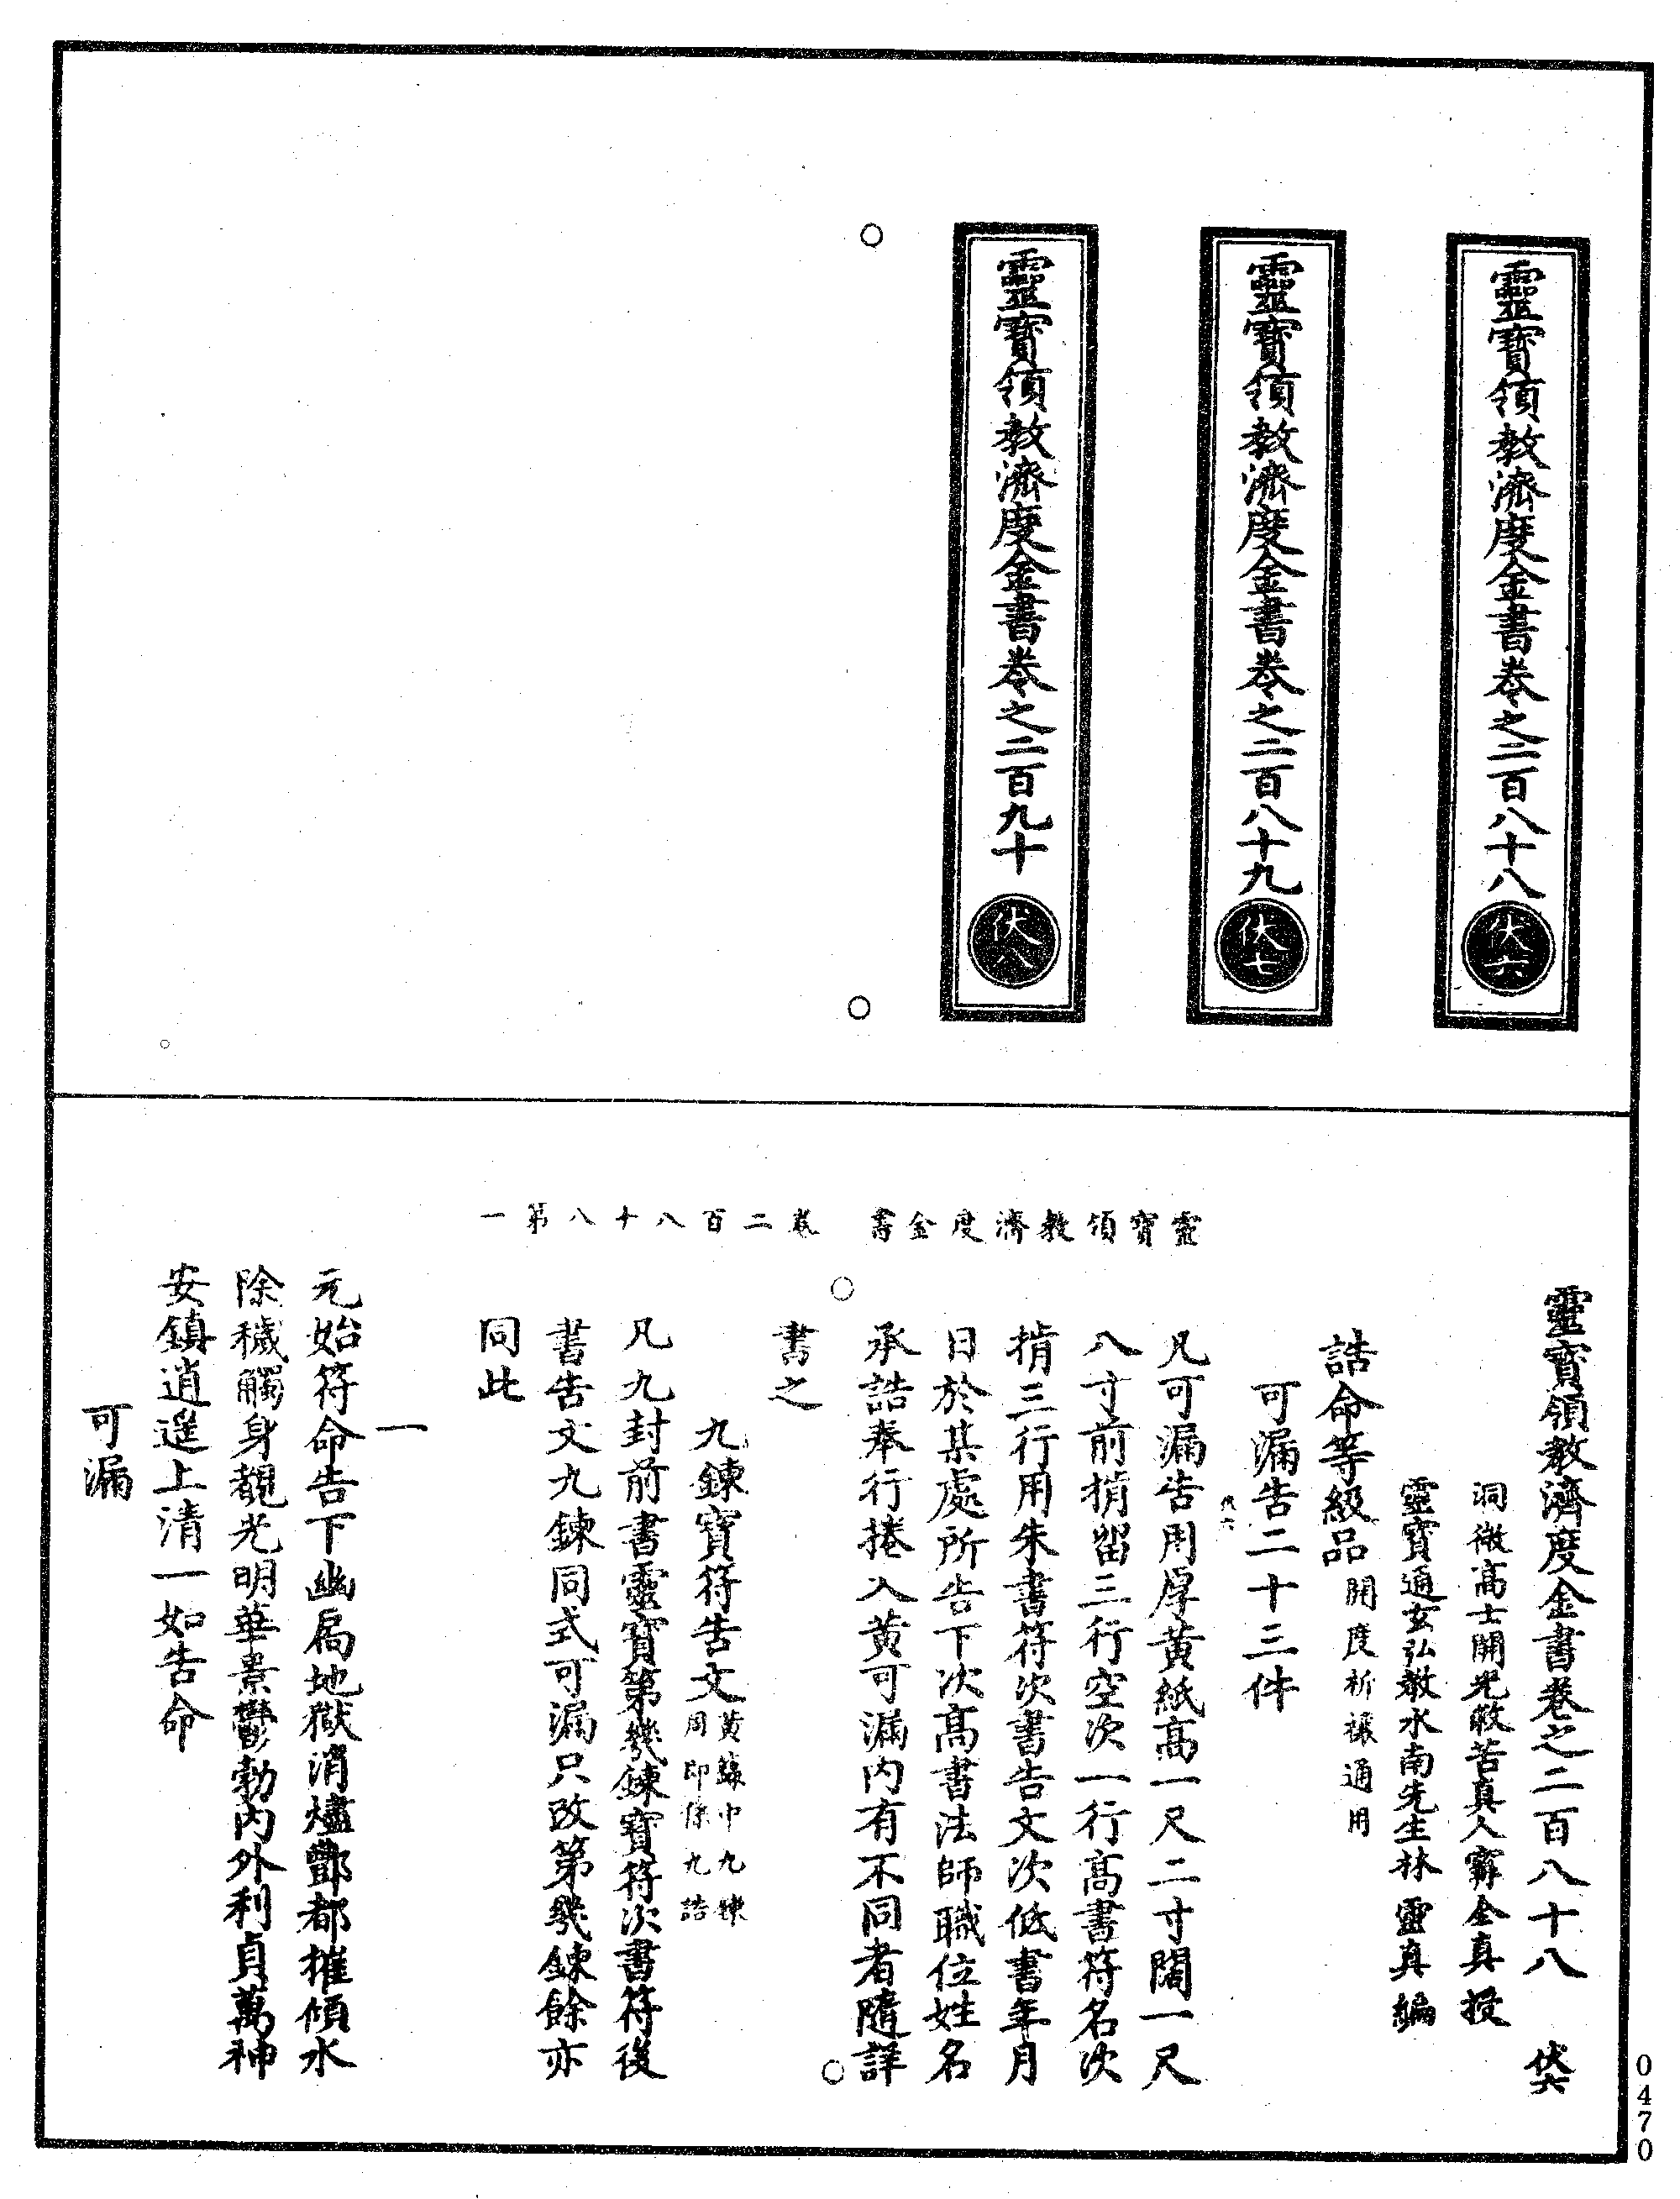 靈寶領教濟度金書卷之二百八十八
伏六
靈寶領教濟度金書卷之二百八十九
伏七
靈寶領教濟度金書卷之二百九十
伏八
靈寶領教濟度金書 卷二百八十八第一
靈寶領教濟度金書卷之二百八十八 伏六
洞微高士開光救苦真人甯全真授
靈寶通玄弘教水南先生林靈真編
誥命等級品開度祈禳通用
可漏告二十三件
伏六
凡可漏告用厚黄紙高一尺二寸闊一尺
八寸前揹留三行空次一行高書符名次
揹三行用朱書符次書告文次低書年月
日於某處所告下次高書法師職位姓名
承誥奉行捲入黄可漏内有不同者隨詳
書之
九鍊寶符告文黄籙中九鍊
用印係九誥
凡九封前書靈寶第幾鍊寶符次書符後
書告文九鍊同式可漏只改第幾鍊餘亦
同此
一
元始符命告下幽扃地獄消爐酆都摧傾水
除穢觸身覩光明華景鬱勃内外利貞萬神
安鎮逍遥上清一如告命
可漏
0470